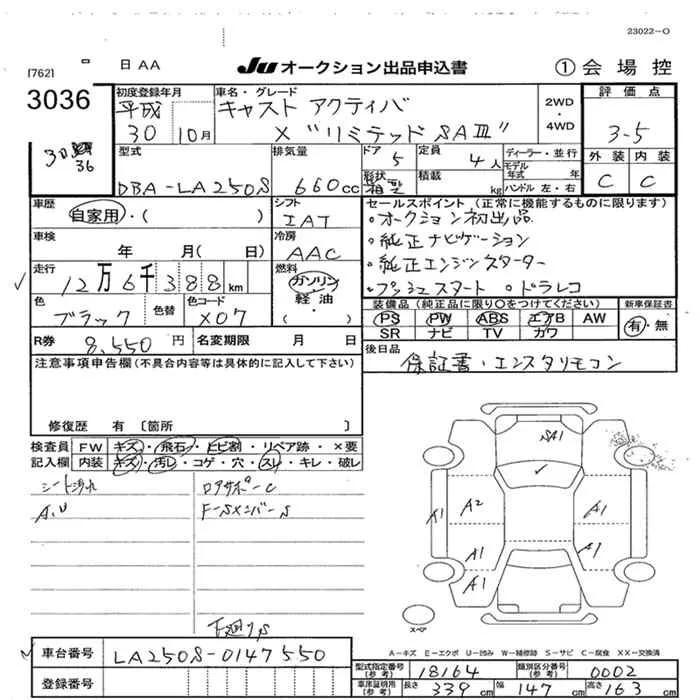 23022-0
[762] 日 AA Ju オークション出品申込書 ① 会場控
3036
初度登録年月 車名・グレード 評価点
平成 キャスト アクティバ 2WD
30 10月 X "リミテッド SAⅢ" 4WD 3-5
36
型式 排気量 ドア 定員 ディーラー・並行 外装 内装
5 4人 モデル年式 年
DBA-LA250S 660cc 形状 積載 kg ハンドル 左・右 C C
車歴 シフト セールスポイント(正常に機能するものに限ります)
自家用・( ) IAT ・オークション初出品
車検 冷房 ・純正ナビゲーション
年 月( 日) AAC ・純正エンジンスターター
走行 燃料 ・プッシュスタート ・ドラレコ
12万6千388km ガソリン 軽油・( )
色 色替 色コード 装備品(純正品に限り○をつけてください) 新車保証書
ブラック X07 PS PW ABS エアB AW 有・無
SR ナビ TV カワ
R券 8,550円 名変期限 月 日 後日品
保証書・エンスタリモコン
注意事項申告欄(不具合内容等は具体的に記入して下さい)
修復歴 有 [箇所 ]
検査員 FW キズ・飛石・ヒビ割・リペア跡・×要
記入欄 内装 キズ・汚レ・コゲ・穴・スレ・キレ・破レ
シート汚れ ロアサポーC
A.U F-Sメンバー S
下廻りS
SA1
A1 A2 A1 A1
A1 A1
A1
スペア
A-キズ E-エクボ U-凹み W-補修跡 S-サビ C-腐食 XX-交換済
車台番号 LA250S-0147550
登録番号
型式指定番号(参考) 18164 類別区分番号(参考) 0002
車庫証明用(参考) 長さ 339cm 幅 147cm 高さ 163cm